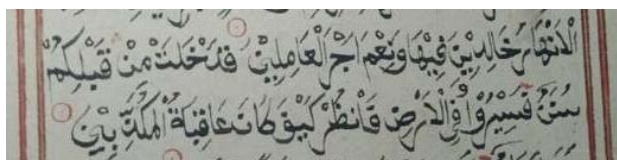 الْاَنْهَارُ خَالِدِيْنَ فِيْهَا وَنِعْمَ اَجْرُ الْعَامِلِيْنَ قَدْ خَلَتْ مِنْ قَبْلِكُمْ
سُنَنٌ فَسِيْرُوْا فِي الْاَرْضِ فَانْظُرْ كَيْفَ كَانَ عَاقِبَةُ الْمُكَذِّبِيْنَ